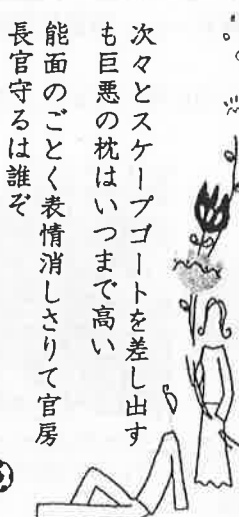 次々とスケープゴートを差し出す
も巨悪の枕はいつまで高い
能面のごとく表情消しさりて官房
長官守るは誰ぞ